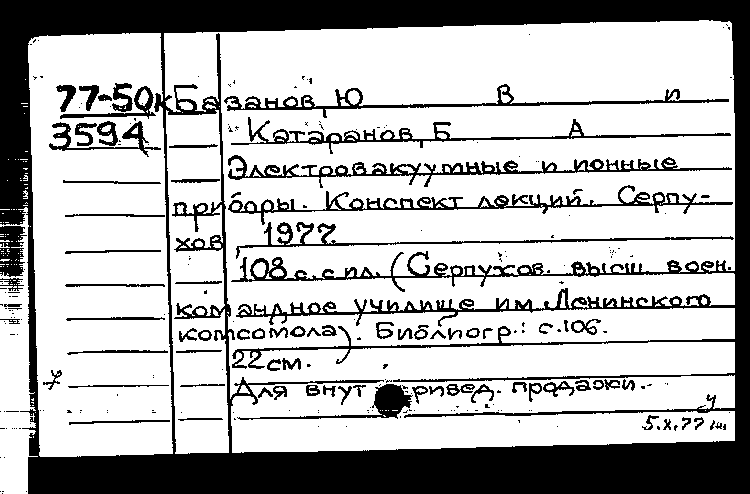 77-50к Базанов, Ю В и
3594 Катаранов, Б А
Электровакуумные и ионные
приборы. Конспект лекций. Серпу-
хов, 1977.
108 с. с ил. (Серпухов. высш. воен.
командное училище им. Ленинского
комсомола). Библиогр.: с. 106.
22 см.
Для внут ривед. продажи.
у
5.X.77